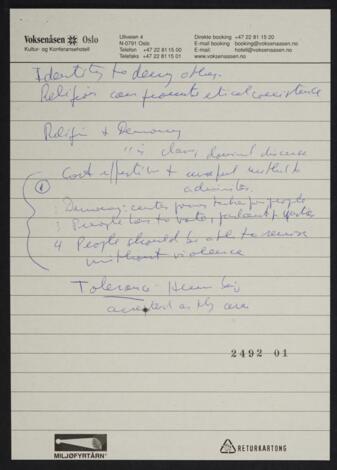 Voksenåsen Oslo
Kultur- og Konferansehotell
Ullveien 4
N-0791 Oslo
Telefon +47 22 81 15 00
Telefaks +47 22 81 15 01
Direkte booking +47 22 81 15 20
E-mail booking booking@voksenaasen.no
E-mail: hotell@voksenaasen.no
www.voksenaasen.no
Identity to deny other.
Religion can promote ethical coexistence
Religion & Democracy
" is class,
Cost effective & useful method to
administer.
1
Democracy: center power people
3 People has to vote,
4 People should be able to remove
without violence
Tolerance - Human being
accepted as they are
2492 01
MILJØFYRTÅRN
RETURKARTONG